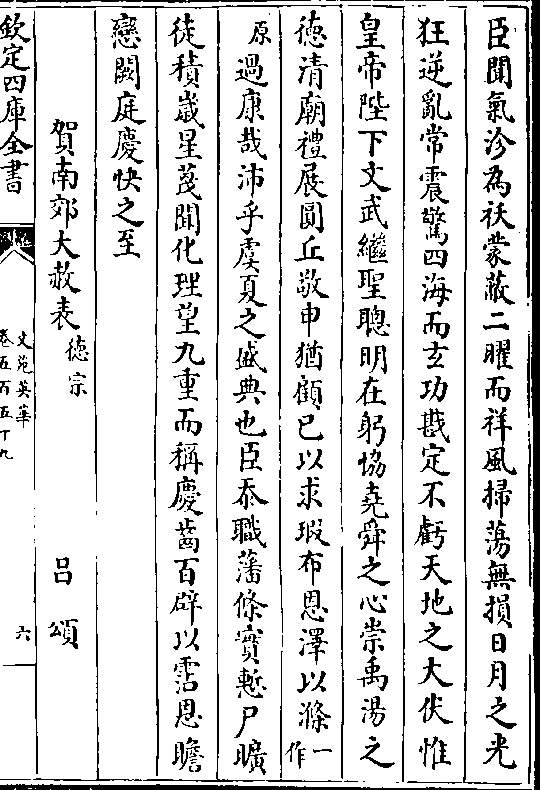 臣聞氣沴為祅蒙蔽二曜而祥風掃蕩無損日月之光
狂逆亂常震驚四海而玄功戡定不虧天地之大伏惟
皇帝陛下文武繼聖聰明在躬協堯舜之心崇禹湯之
徳清廟禮展圓丘敬申猶顧已以求瑕布恩澤以滌一作
原過康哉沛乎虞夏之盛典也臣忝職藩條實慙尸曠
徒積嵗星茂聞化理望九重而稱慶齒百辟以霑恩瞻
戀闕庭慶快之至
賀南郊大赦表徳宗 吕頌
欽定四庫全書
文苑英華
卷五百五十九
六